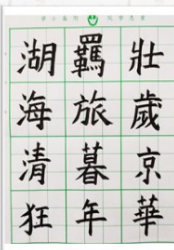 壯歲京華
羈旅暮年
湖海清狂